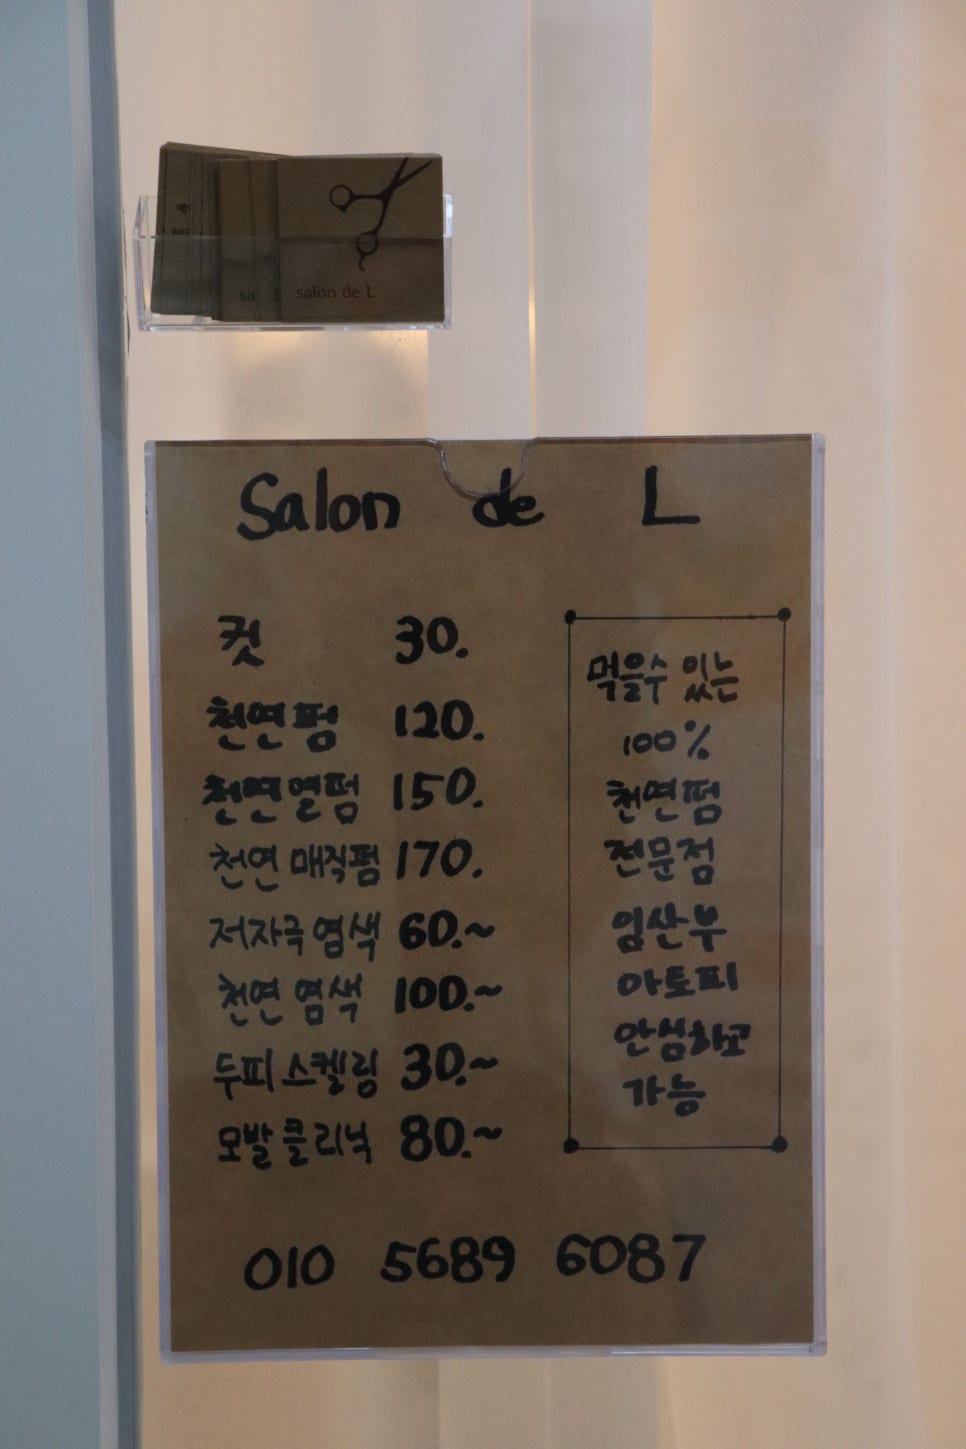 sa
s
salon de L
Salon de L
컷 30.
천연펌 120.
천연열펌 150.
천연 매직펌 170.
저자극 염색 60.~
천연 염색 100.~
두피 스켈링 30.~
모발 클리닉 80.~
먹을수 있는
100%
천연펌
전문점
임산부
아토피
안심하고
가능
010 5689 6087